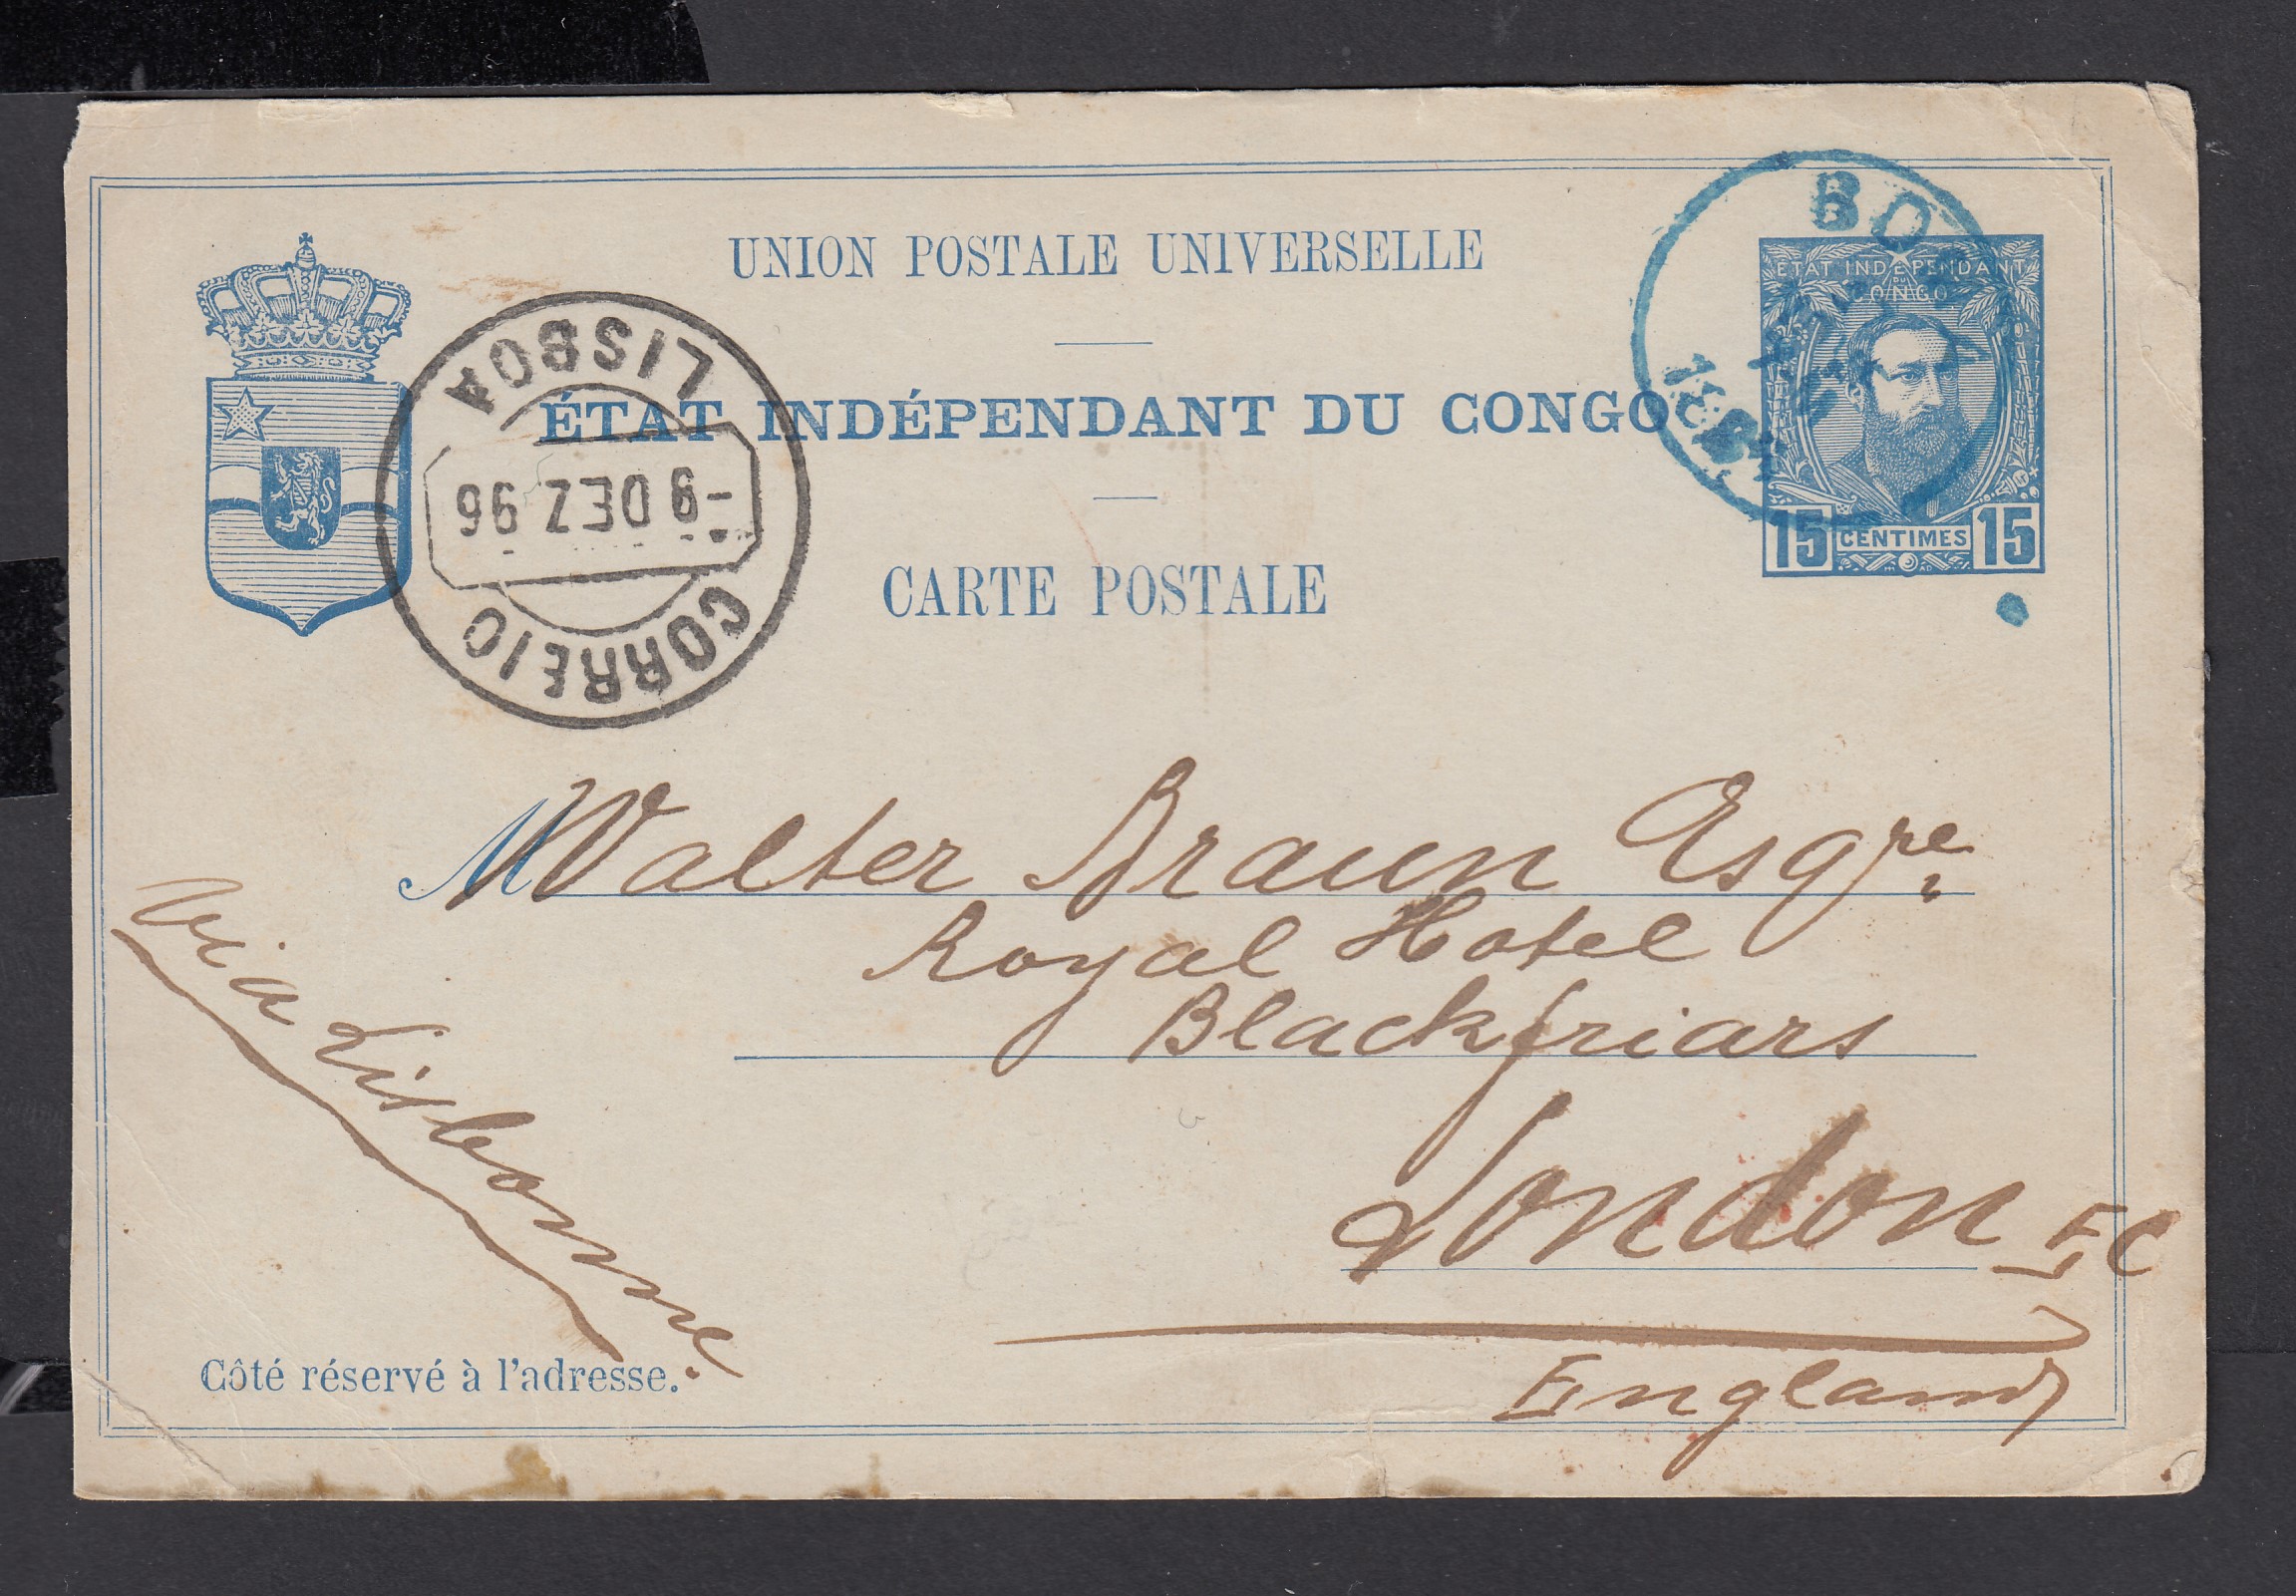 UNION POSTALE UNIVERSELLE
ÉTAT INDÉPENDANT DU CONGO
CARTE POSTALE
ETAT INDÉPENDANT
DU
CONGO
15 CENTIMES 15
LISBOA
-9 DEZ 96
CORREIO
M Walter Braun Esqre.
Royal Hotel
Blackfriars
London EC
England
via Lisbonne.
Côté réservé à l'adresse.